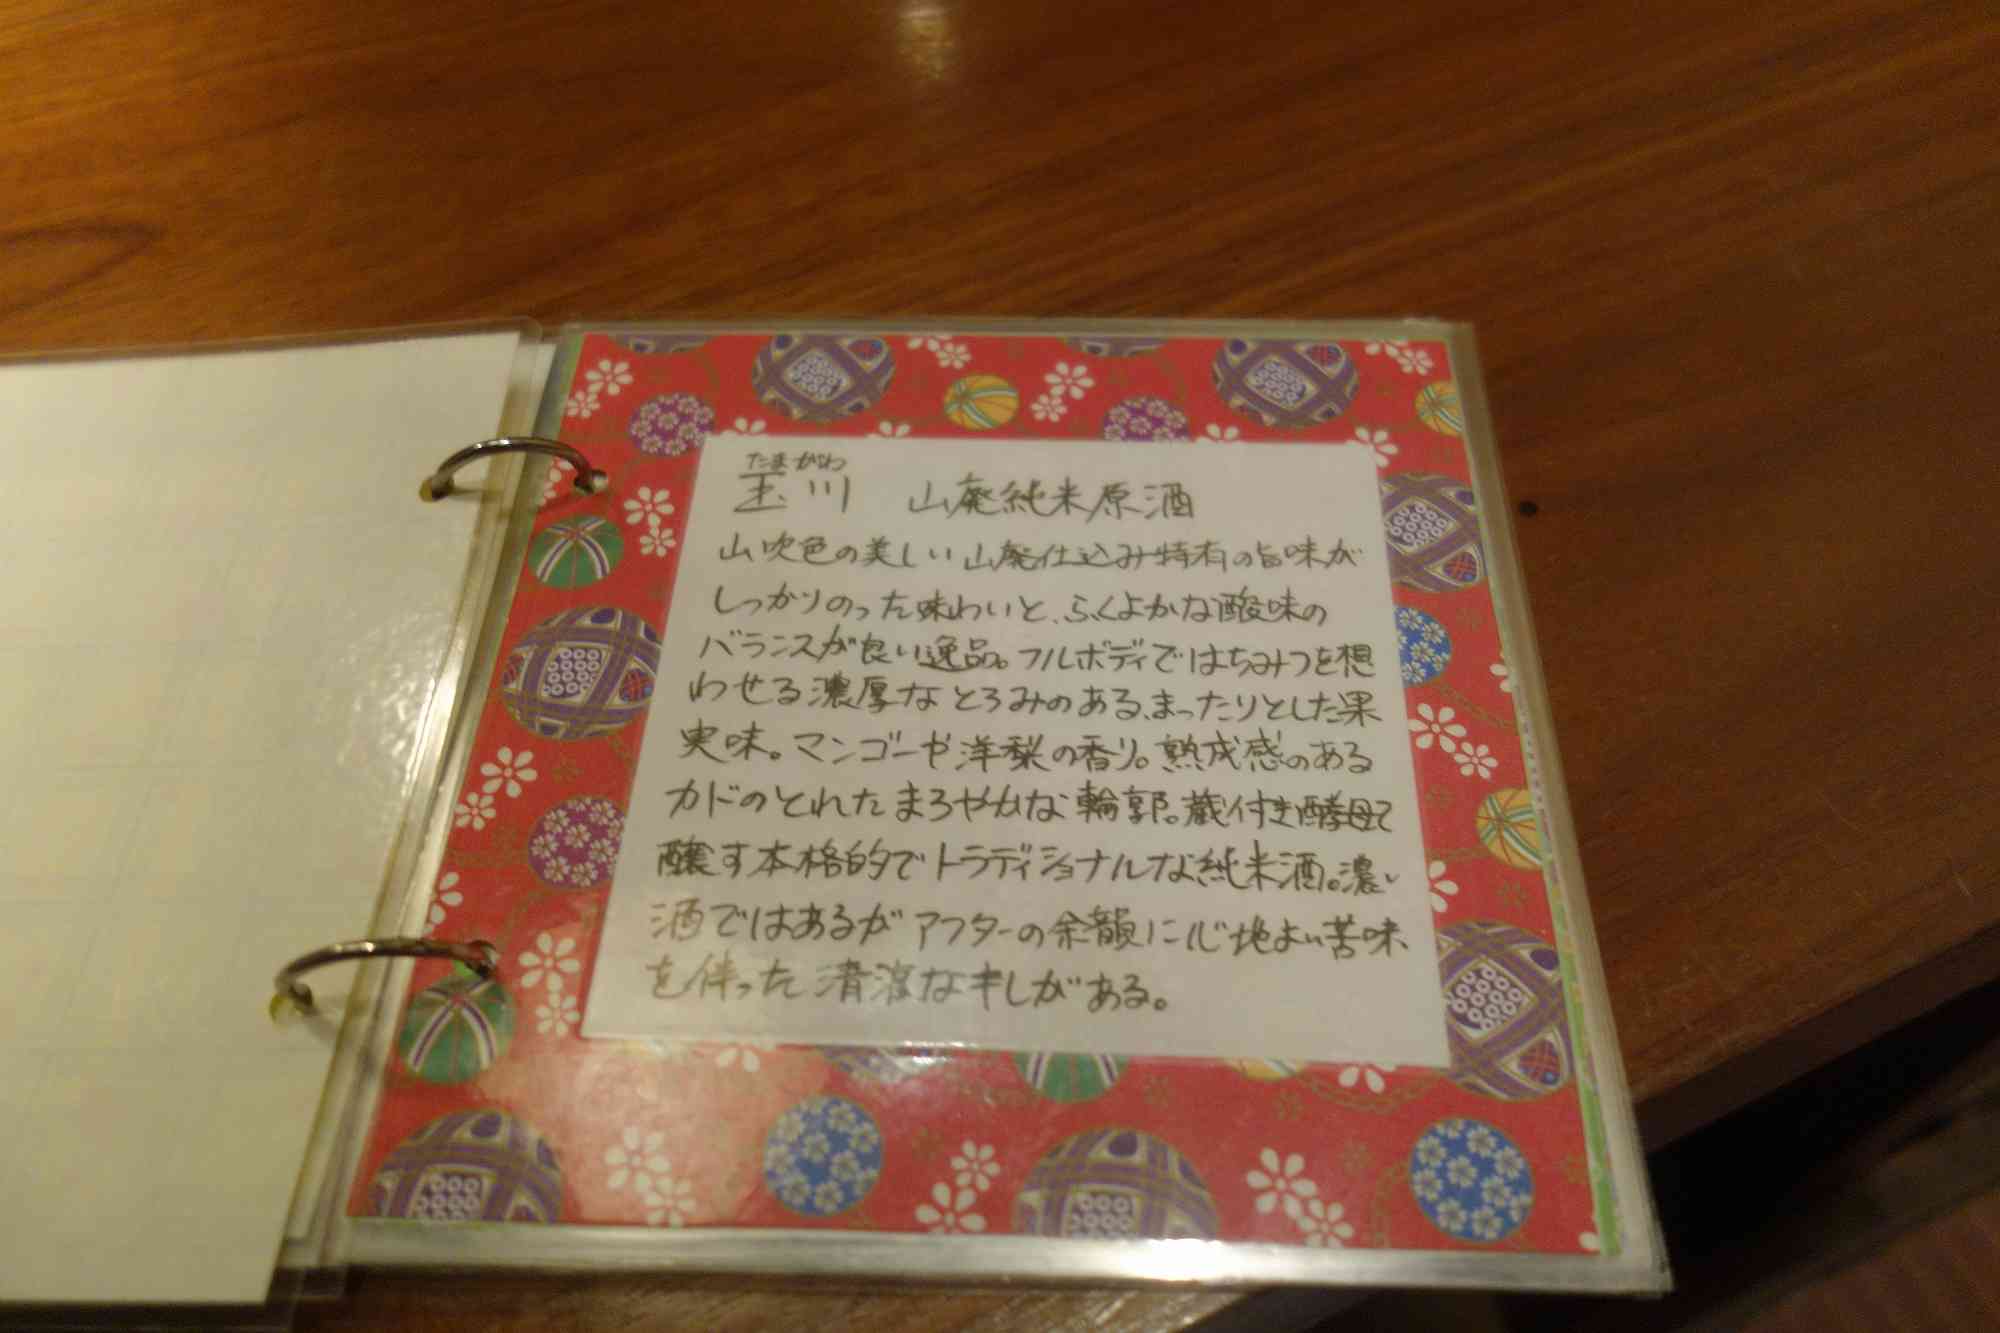 たまがわ
玉川 山廃純米原酒
山吹色の美しい山廃仕込み特有の旨味が
しっかりのった味わいと、ふくよかな酸味の
バランスが良い逸品。フルボディではちみつを想
わせる濃厚なとろみのある、まったりとした果
実味。マンゴーや洋梨の香り。熟成感のある
カドのとれたまろやかな輪郭。蔵付き酵母で
醸す本格的でトラディショナルな純米酒。濃い
酒ではあるがアフターの余韻に心地よい苦味
を伴った清涼なキレがある。